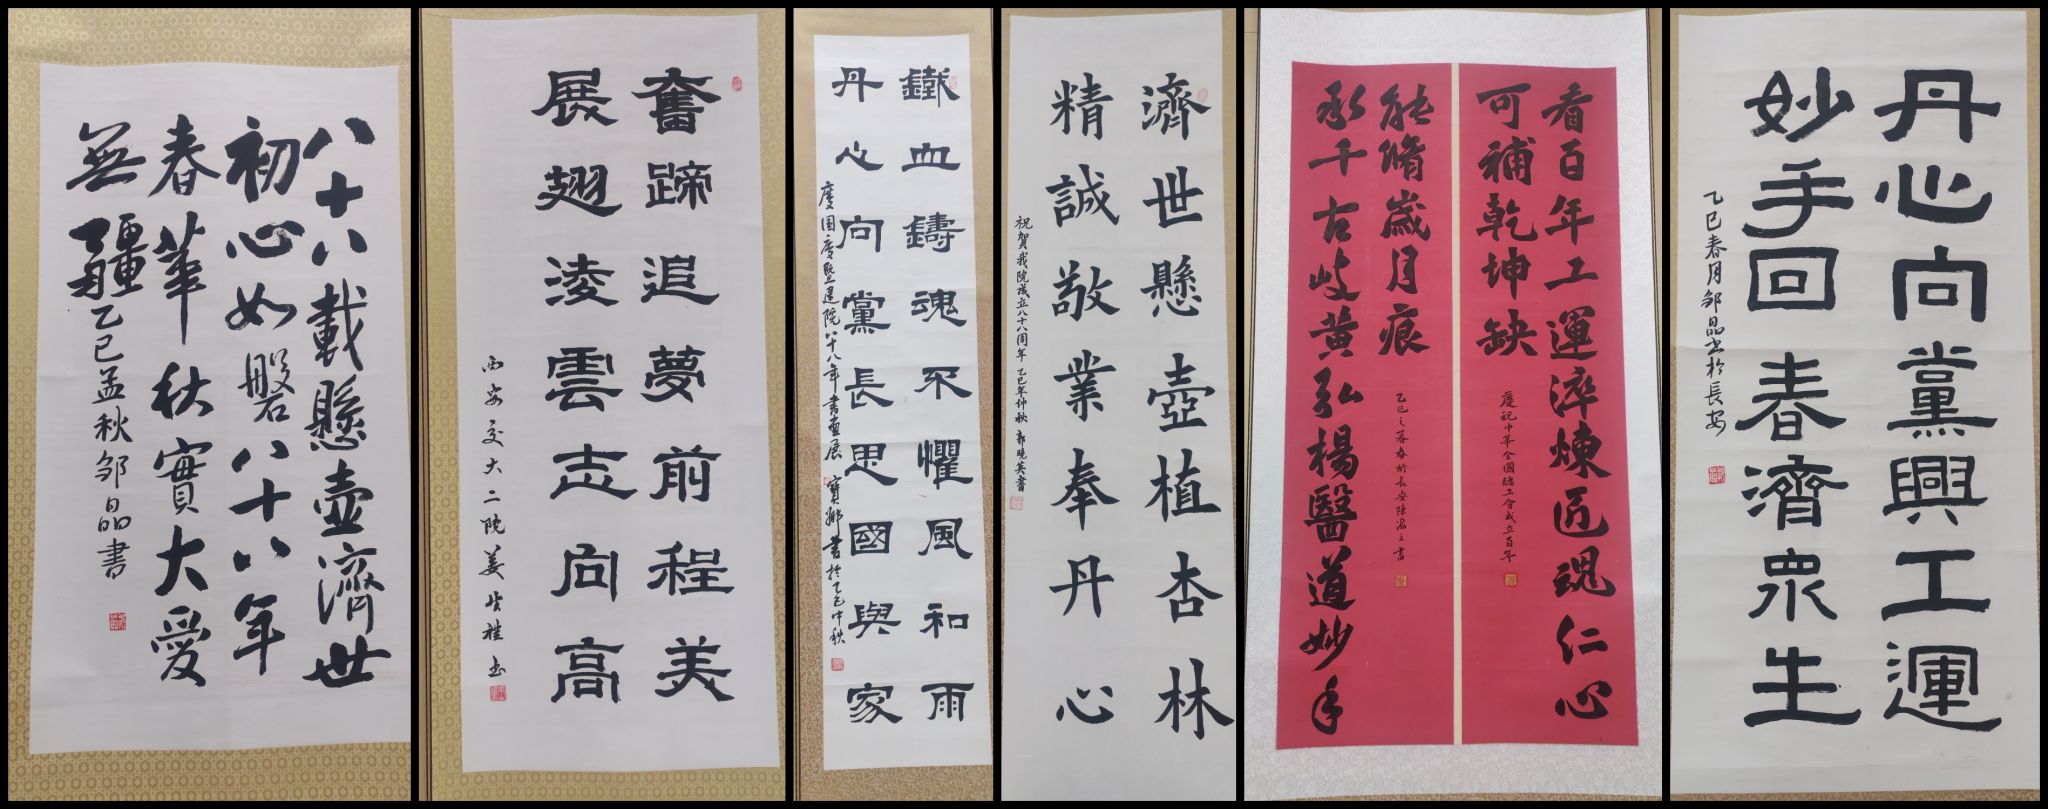 八十八載懸壺濟世
初心如磐八十八年
春華秋實大愛
無疆
乙巳孟秋邹晶書
奮蹄追夢前程美
展翅淩雲志向高
西安交大二院姜
書
鐵血鑄魂不懼風和雨
丹心向黨長思國與家
慶国慶暨建院八十八年書畫展
書於乙巳仲秋
濟世懸壺植杏林
精誠敬業奉丹心
祝賀我院成立八十八周年 乙巳年仲秋 郭曉英書
看百年工運淬煉匠魂仁心
可補乾坤缺
慶祝中華全國總工會成立百年
能脩歲月痕
承千古岐黄弘楊醫道妙手
乙巳之暮春於長安陳
書
丹心向黨興工運
妙手回春濟眾生
乙巳春月邹晶书於長安